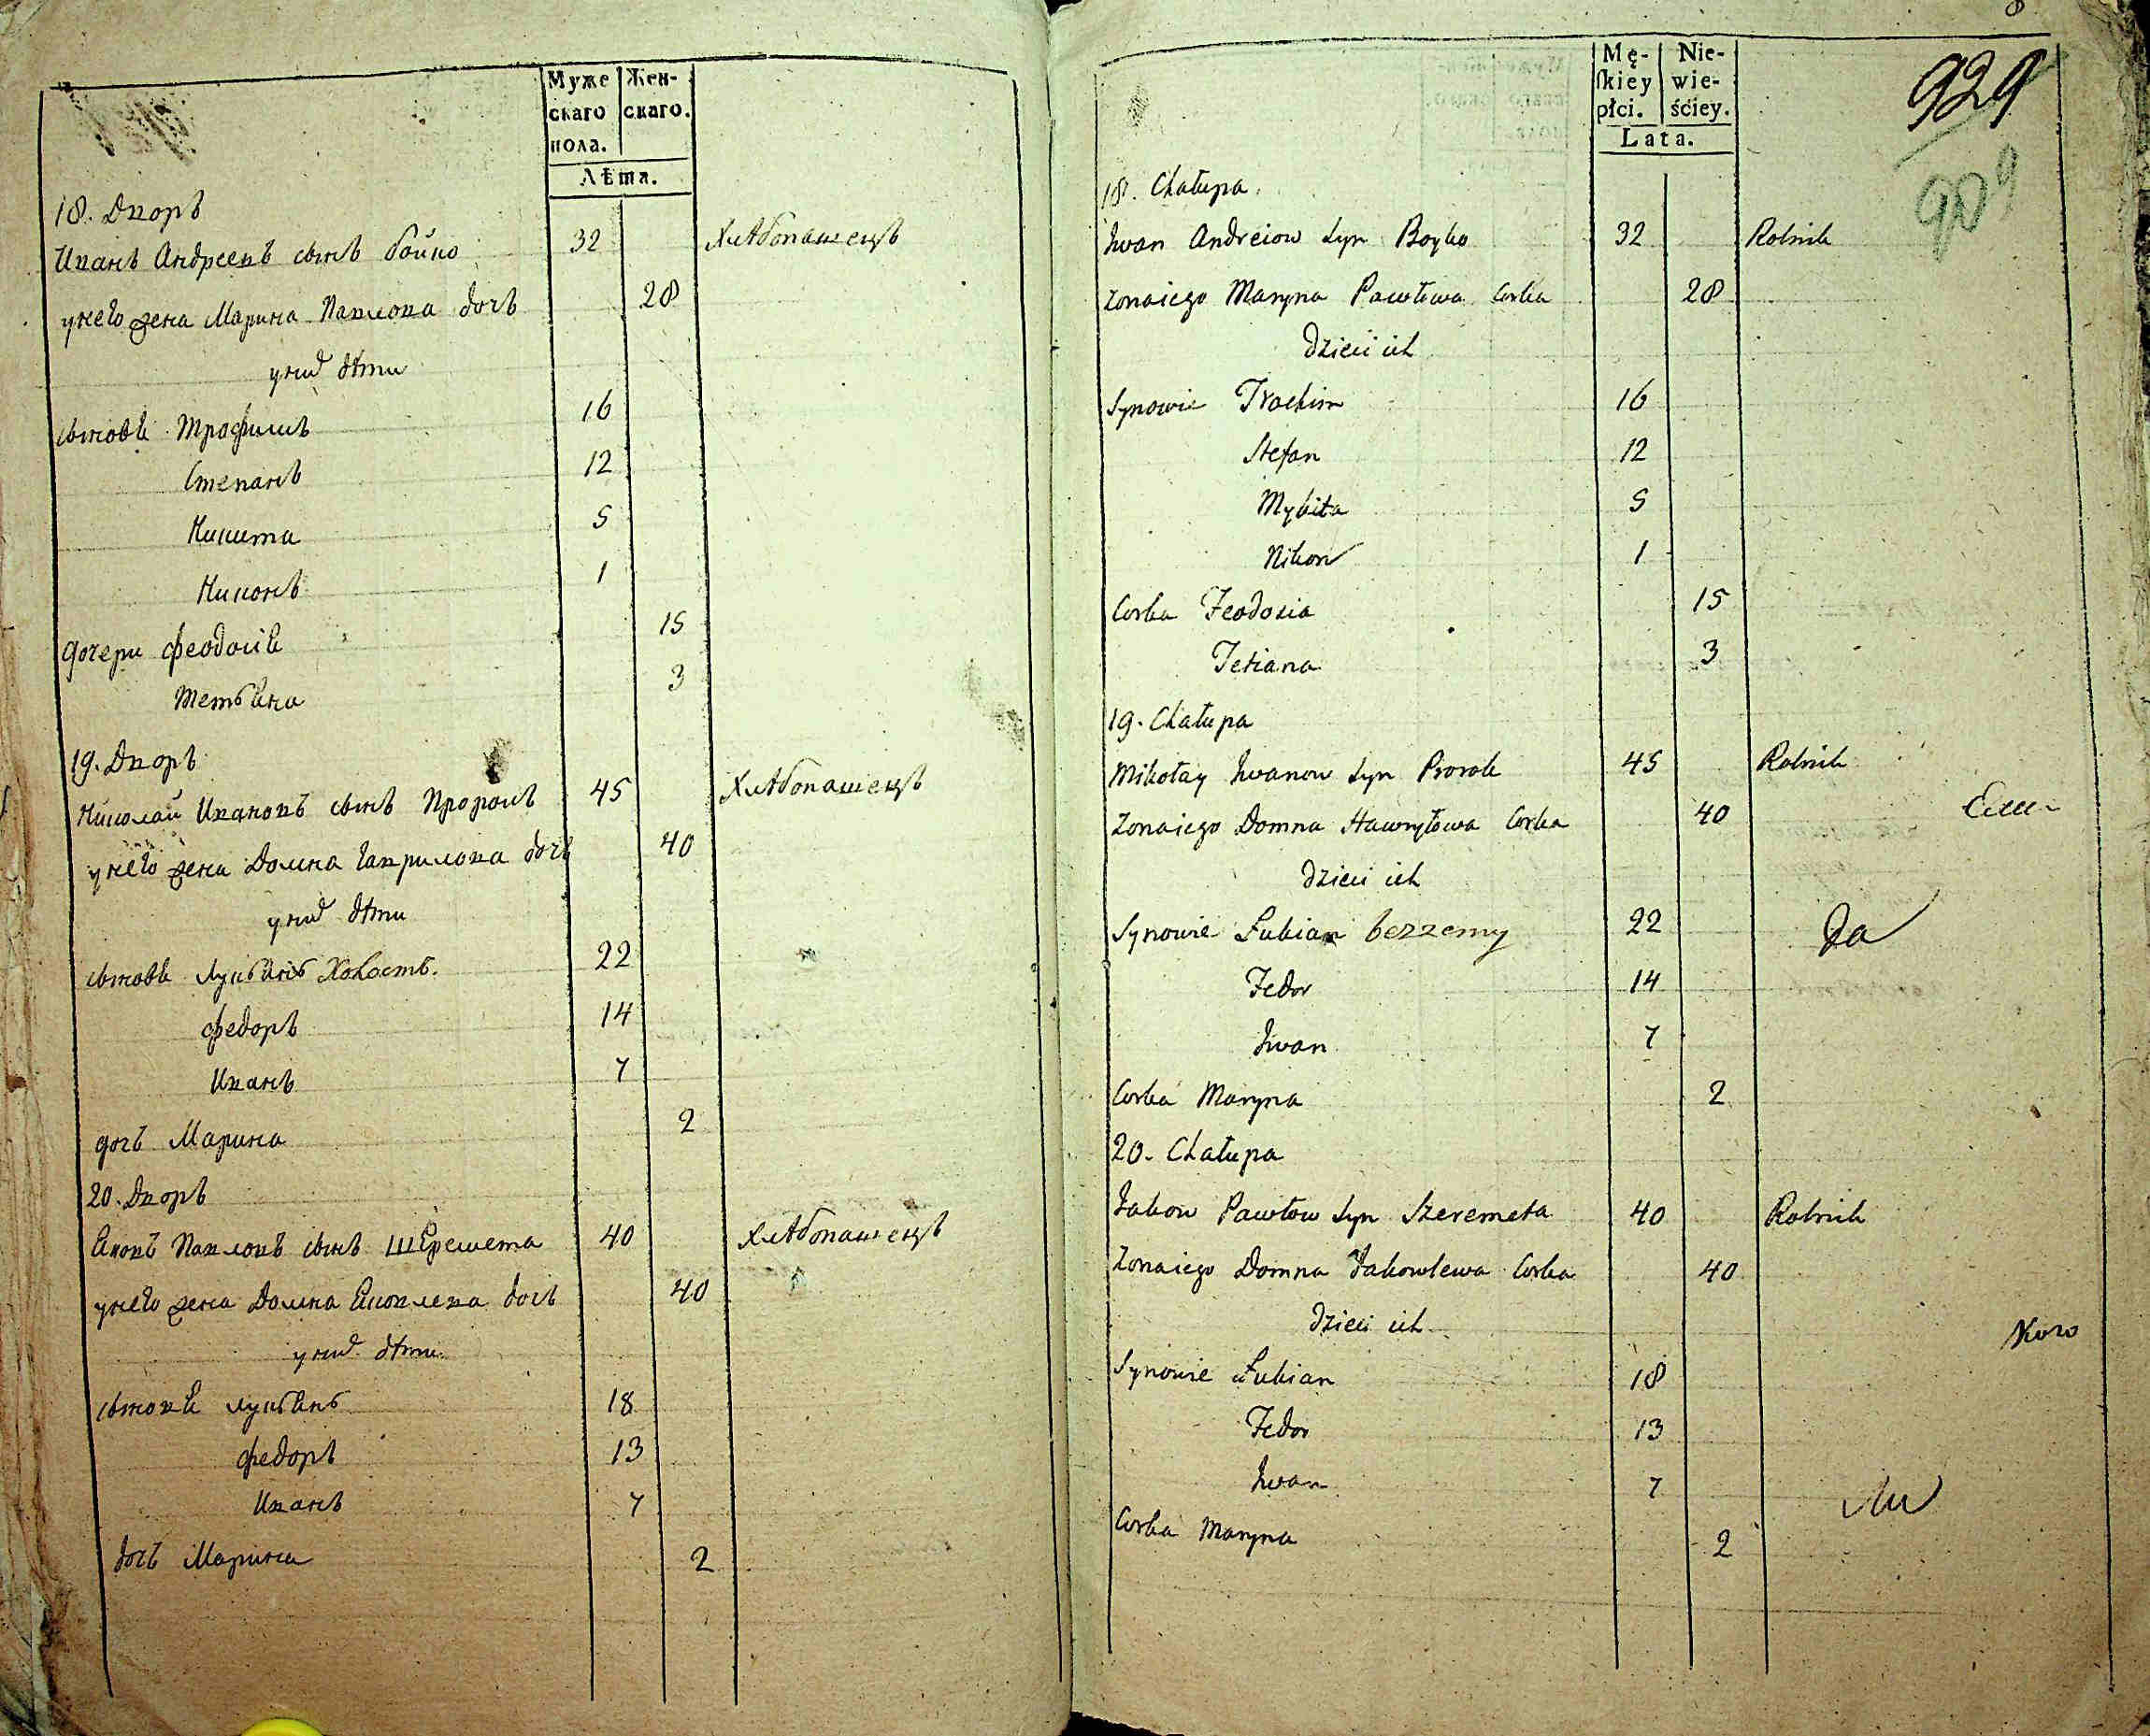 Муже
скаго
пола.
Жен-
скаго.
Лѣта.
18. Дворъ
Иванъ Андреевъ сынъ бойко 32 Хлѣбопашецъ
унего жена Марина Павлова дочь 28
уних дѣти
сыновья Трофимъ 16
Степанъ 12
Никита 5
Никонъ 1
дочери феодосія 15
Тетьяна 3
19. Дворъ
Николай Ивановъ сынъ Пророкъ 45 Хлѣбопашецъ
унего жена Домна Гаврилова дочь 40
уних дѣти
сыновья Лукьянъ Холостъ. 22
федоръ 14
Иванъ 7
дочь Марина 2
20. Дворъ
Яковъ Павловъ сынъ Шеремета 40 Хлѣбопашецъ
унего жена Домна Яковлева дочь 40
уних дѣти
сыновья лукьянъ 18
федоръ 13
Иванъ 7
дочь Марина 2
8
Mę-
ſkiey
płci.
Nie-
wie-
ściey.
Lata.
929
909
18. Chałupa
Jwan Andreiow Syn Boyko 32 Rolnik
Zonaiego Maryna Pawłowa Corka 28
dzieci ich
Synowie Trochim 16
Stefan 12
Mykita 5
Nikon 1
Corka Feodosia 15
Tetiana 3
19. Chałupa
Mikołay Jwanow Syn Prorok 45 Rolnik
Zonaiego Domna Hawryłowa Corka 40
dzieci ich
Synowie Łukian bezzenny 22
Да
Fedor 14
Jwan 7
Corka Maryna 2
20. Chałupa
Jakow Pawłow Syn Szeremeta 40 Rolnik
Zonaiego Domna Jakowlewa Corka 40
dzieci ich
Synowie Łukian 18
Fedor 13
Jwan 7
Corka Maryna 2